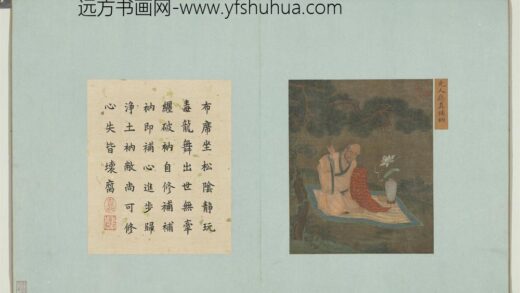 远方书画网-www.yfshuhua.com
元人應真補衲
布席坐松陰靜玩
毒龍舞出世無牽
纏破衲自修補補
衲即補心進步歸
淨土衲敝尚可修
心失皆壞腐